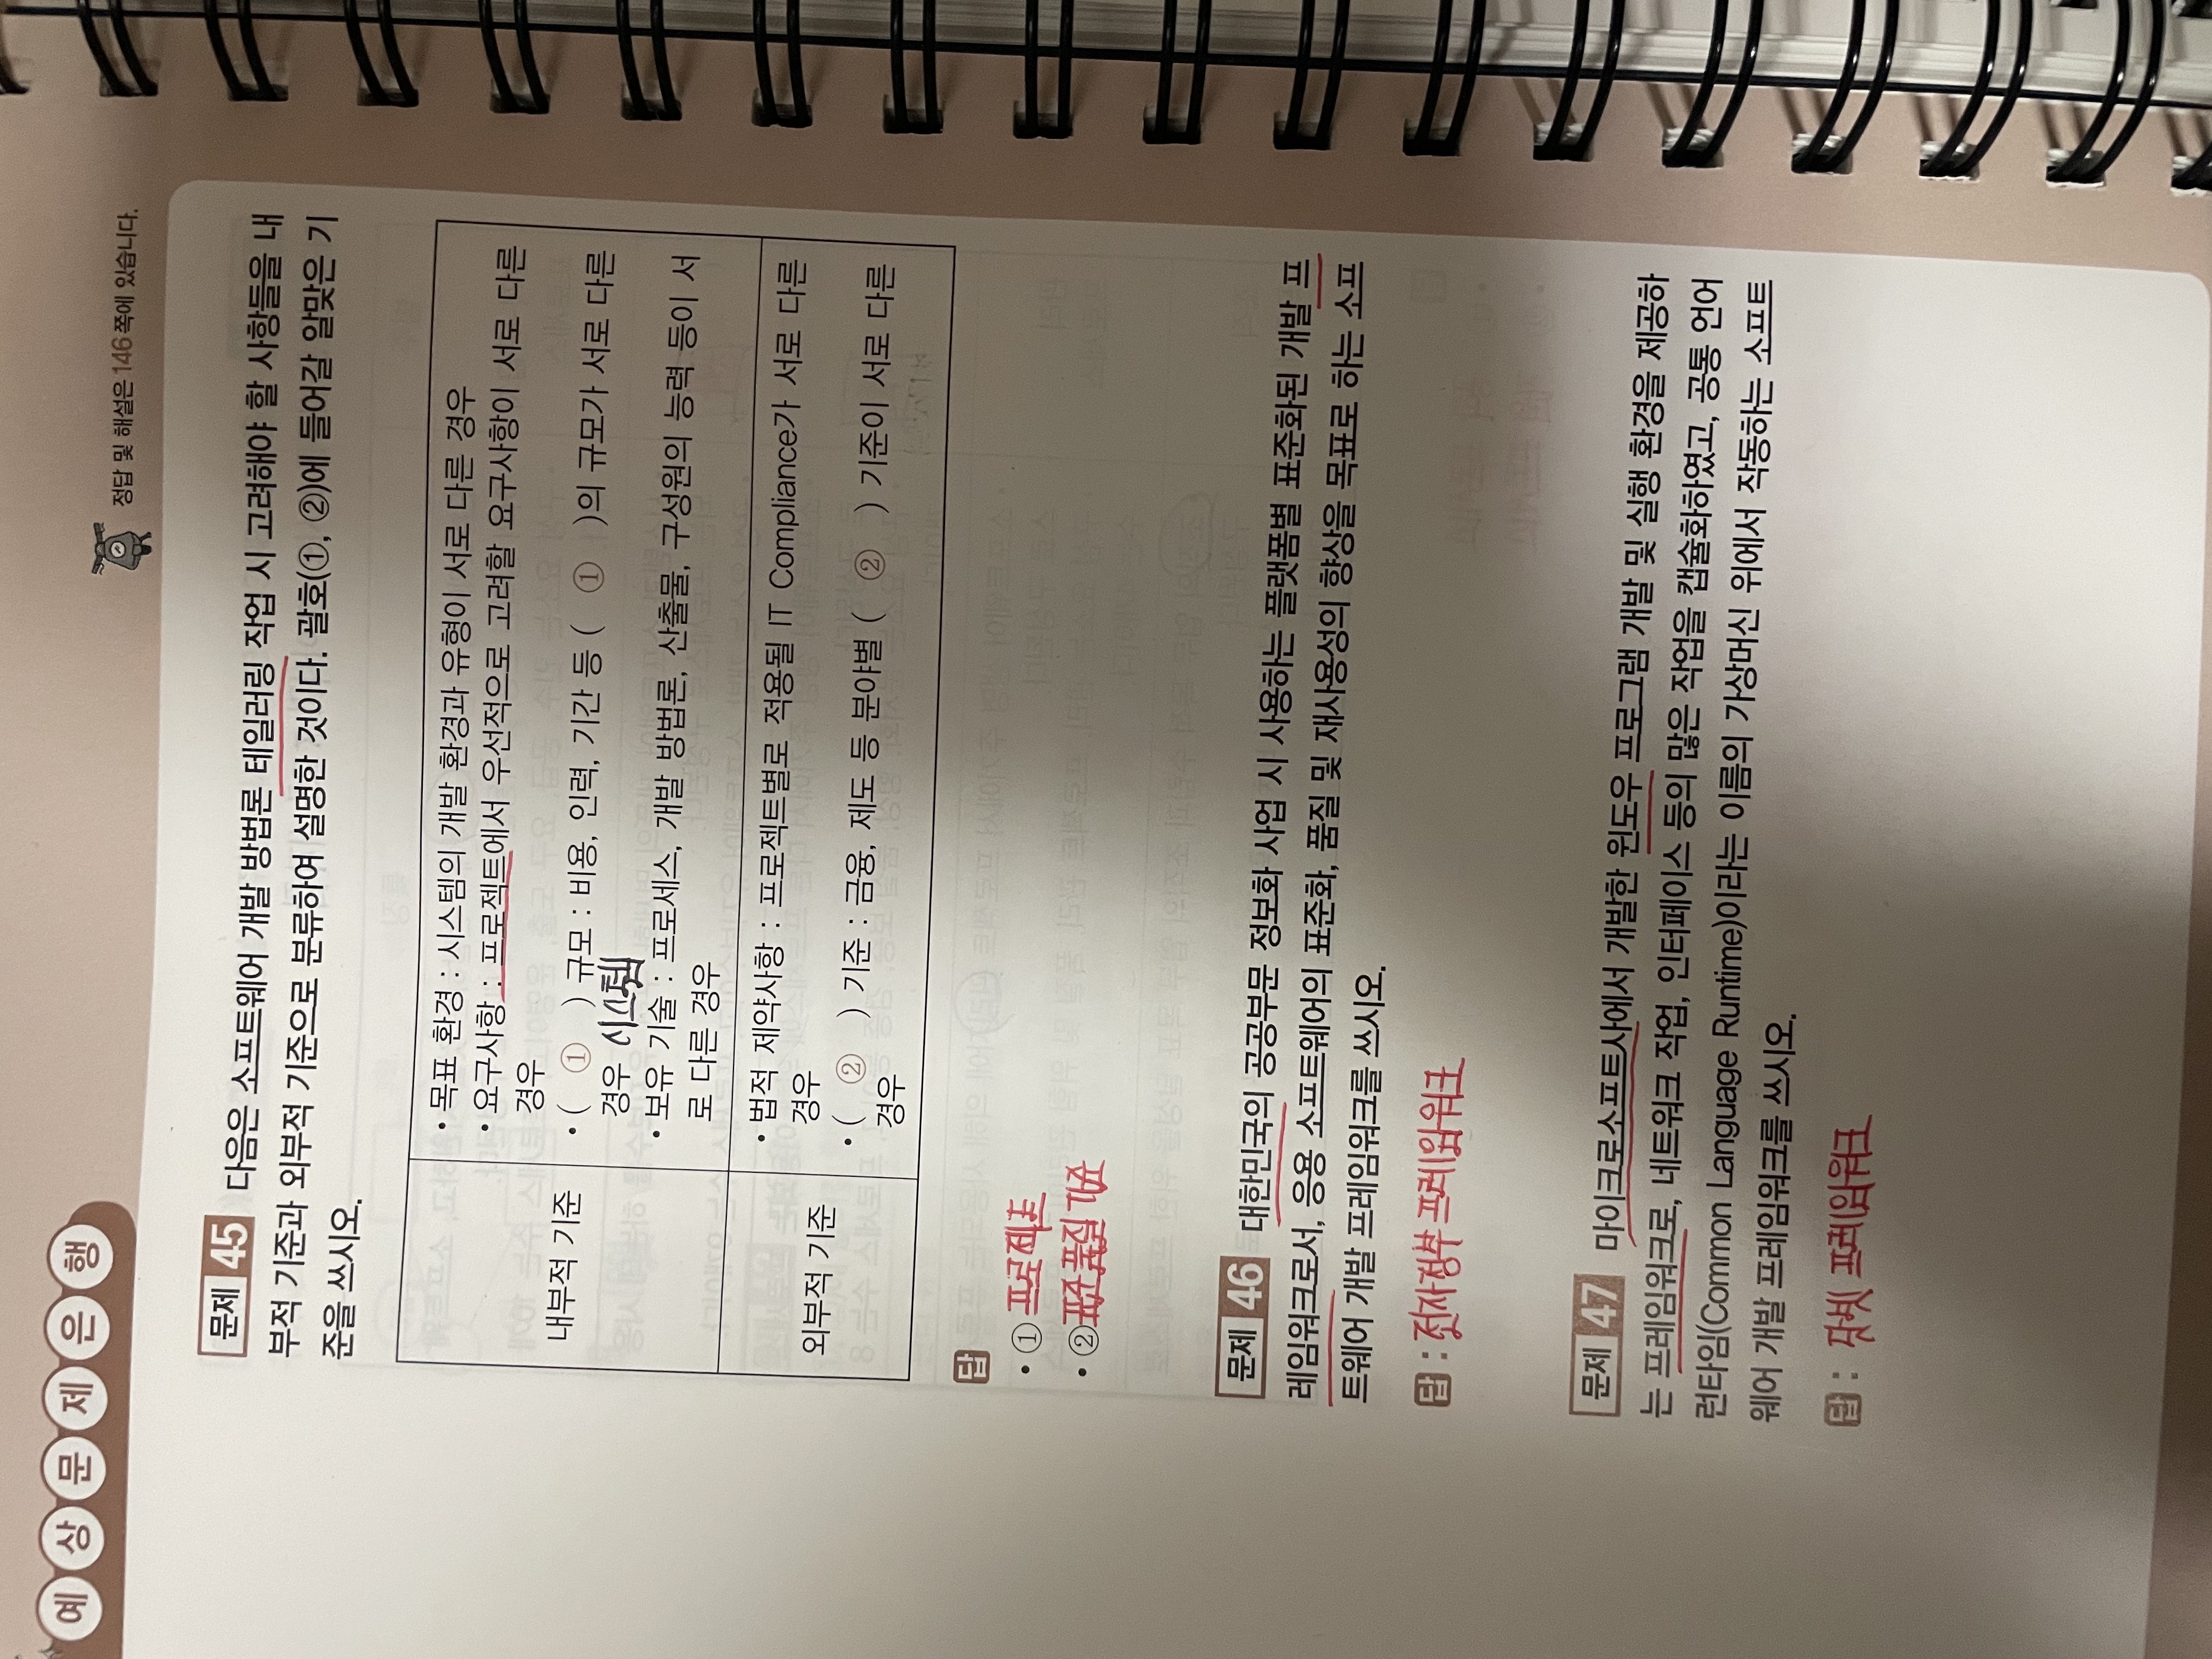 예상문제은행
정답 및 해설은 146쪽에 있습니다.
문제 45 다음은 소프트웨어 개발 방법론 테일러링 작업 시 고려해야 할 사항들을 내
부적 기준과 외부적 기준으로 분류하여 설명한 것이다. 괄호(①, ②)에 들어갈 알맞은 기
준을 쓰시오.
내부적 기준
• 목표 환경 : 시스템의 개발 환경과 유형이 서로 다른 경우
• 요구사항 : 프로젝트에서 우선적으로 고려할 요구사항이 서로 다른
경우
• ( ① ) 규모 : 비용, 인력, 기간 등 ( ① )의 규모가 서로 다른
경우 시스템
• 보유 기술 : 프로세스, 개발 방법론, 산출물, 구성원의 능력 등이 서
로 다른 경우
외부적 기준
• 법적 제약사항 : 프로젝트별로 적용될 IT Compliance가 서로 다른
경우
• ( ② ) 기준 : 금융, 제도 등 분야별 ( ② ) 기준이 서로 다른
경우
답
• ① 프로젝트
• ② 표준품질 기준
문제 46 대한민국의 공공부문 정보화 사업 시 사용하는 플랫폼별 표준화된 개발 프
레임워크로서, 응용 소프트웨어의 표준화, 품질 및 재사용성의 향상을 목표로 하는 소프
트웨어 개발 프레임워크를 쓰시오.
답 : 전자정부 프레임워크
문제 47 마이크로소프트사에서 개발한 윈도우 프로그램 개발 및 실행 환경을 제공하
는 프레임워크로, 네트워크 작업, 인터페이스 등의 많은 작업을 캡슐화하였고, 공통 언어
런타임(Common Language Runtime)이라는 이름의 가상머신 위에서 작동하는 소프트
웨어 개발 프레임워크를 쓰시오.
답 : 닷넷 프레임워크